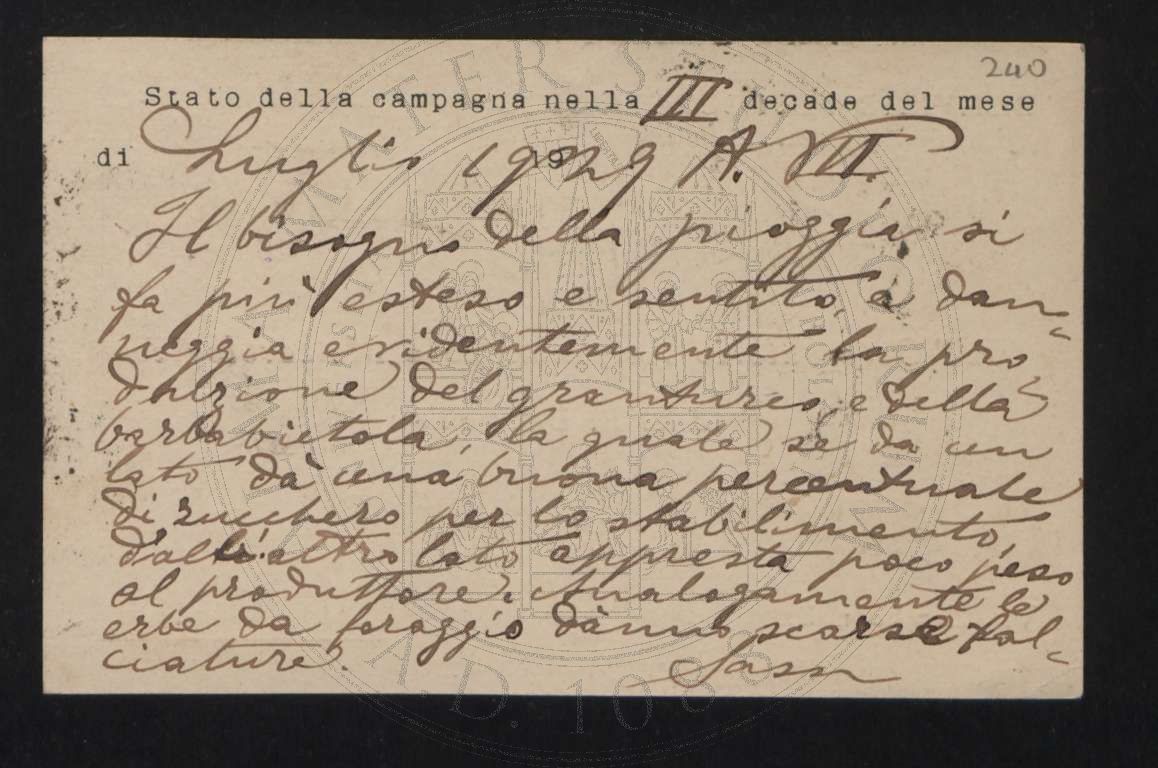 240
Stato della campagna nella III decade del mese
di Luglio 1929 A. VII.
Il bisogno della pioggia si
fa più esteso e sentito, e dan-
neggia evidentemente la pro
duzione del granturco, e della
barbabietola, la quale se da un
lato dà una buona percentuale
di zucchero per lo stabilimento,
dall'altro lato appresta poco peso
al produttore. Analogamente le
erbe da foraggio dànno scarse fal-
ciature.
ALMA MATER STUDIORUM
A.D. 1088